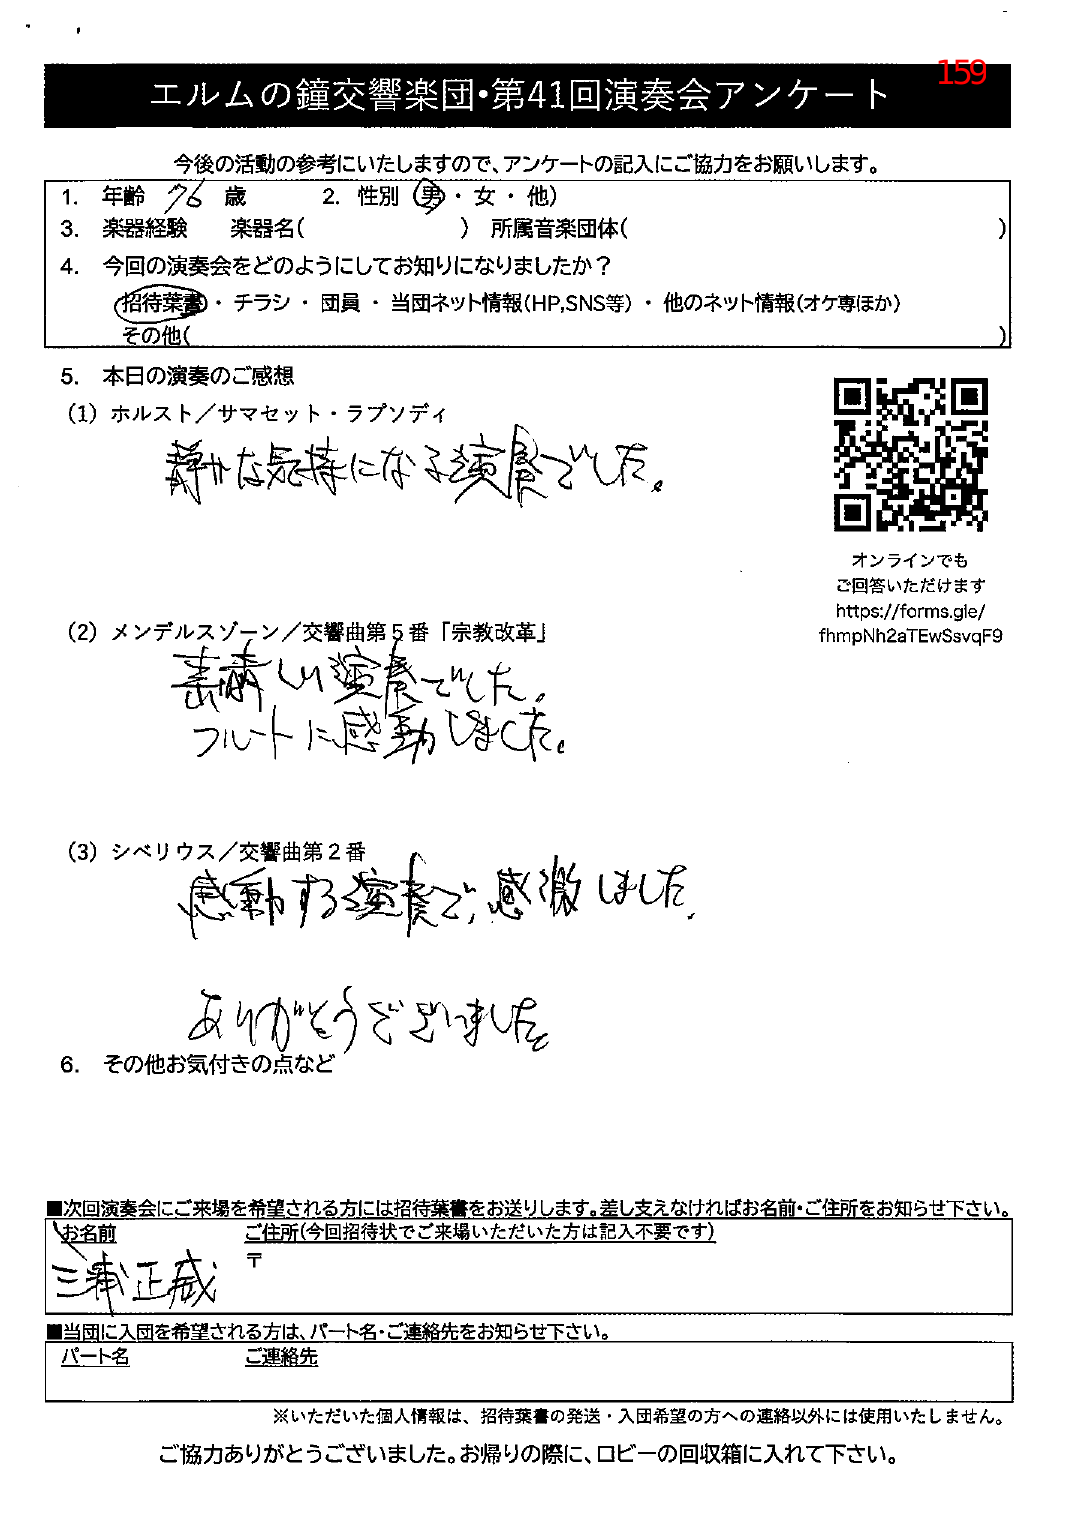 159
エルムの鐘交響楽団・第41回演奏会アンケート
今後の活動の参考にいたしますので、アンケートの記入にご協力をお願いします。
1. 年齢 76 歳 2. 性別 (男・女・他)
3. 楽器経験 楽器名( ) 所属音楽団体( )
4. 今回の演奏会をどのようにしてお知りになりましたか？
招待葉書・チラシ・団員・当団ネット情報(HP,SNS等)・他のネット情報(オケ専ほか)
その他( )
5. 本日の演奏のご感想
(1) ホルスト／サマセット・ラプソディ
静かな気持になる演奏でした。
オンラインでも
ご回答いただけます
https://forms.gle/
fhmpNh2aTEwSsvqF9
(2) メンデルスゾーン／交響曲第５番「宗教改革」
素晴しい演奏でした。
フルートに感動しました。
(3) シベリウス／交響曲第２番
感動する演奏で、感激しました。
ありがとうございました。
6. その他お気付きの点など
■次回演奏会にご来場を希望される方には招待葉書をお送りします。差し支えなければお名前・ご住所をお知らせ下さい。
お名前 ご住所(今回招待状でご来場いただいた方は記入不要です)
〒
三浦正威
■当団に入団を希望される方は、パート名・ご連絡先をお知らせ下さい。
パート名 ご連絡先
※いただいた個人情報は、招待葉書の発送・入団希望の方への連絡以外には使用いたしません。
ご協力ありがとうございました。お帰りの際に、ロビーの回収箱に入れて下さい。